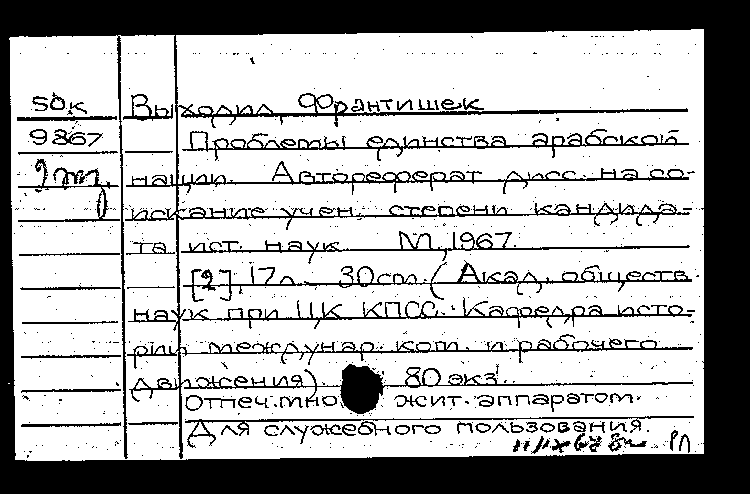 SOK Выходил, Франтишек
9867 Проблемы единства арабской
нации. Автореферат дисс. на со-
искание учен. степени кандида-
та ист. наук М., 1967.
[2], 17 л. 30 см. (Акад. обществ.
наук при ЦК КПСС. Кафедра исто-
рии междунар. ком. и рабочего
движения) 80 экз.
Отпеч. мно жит. аппаратом.
Для служебного пользования.
РЛ